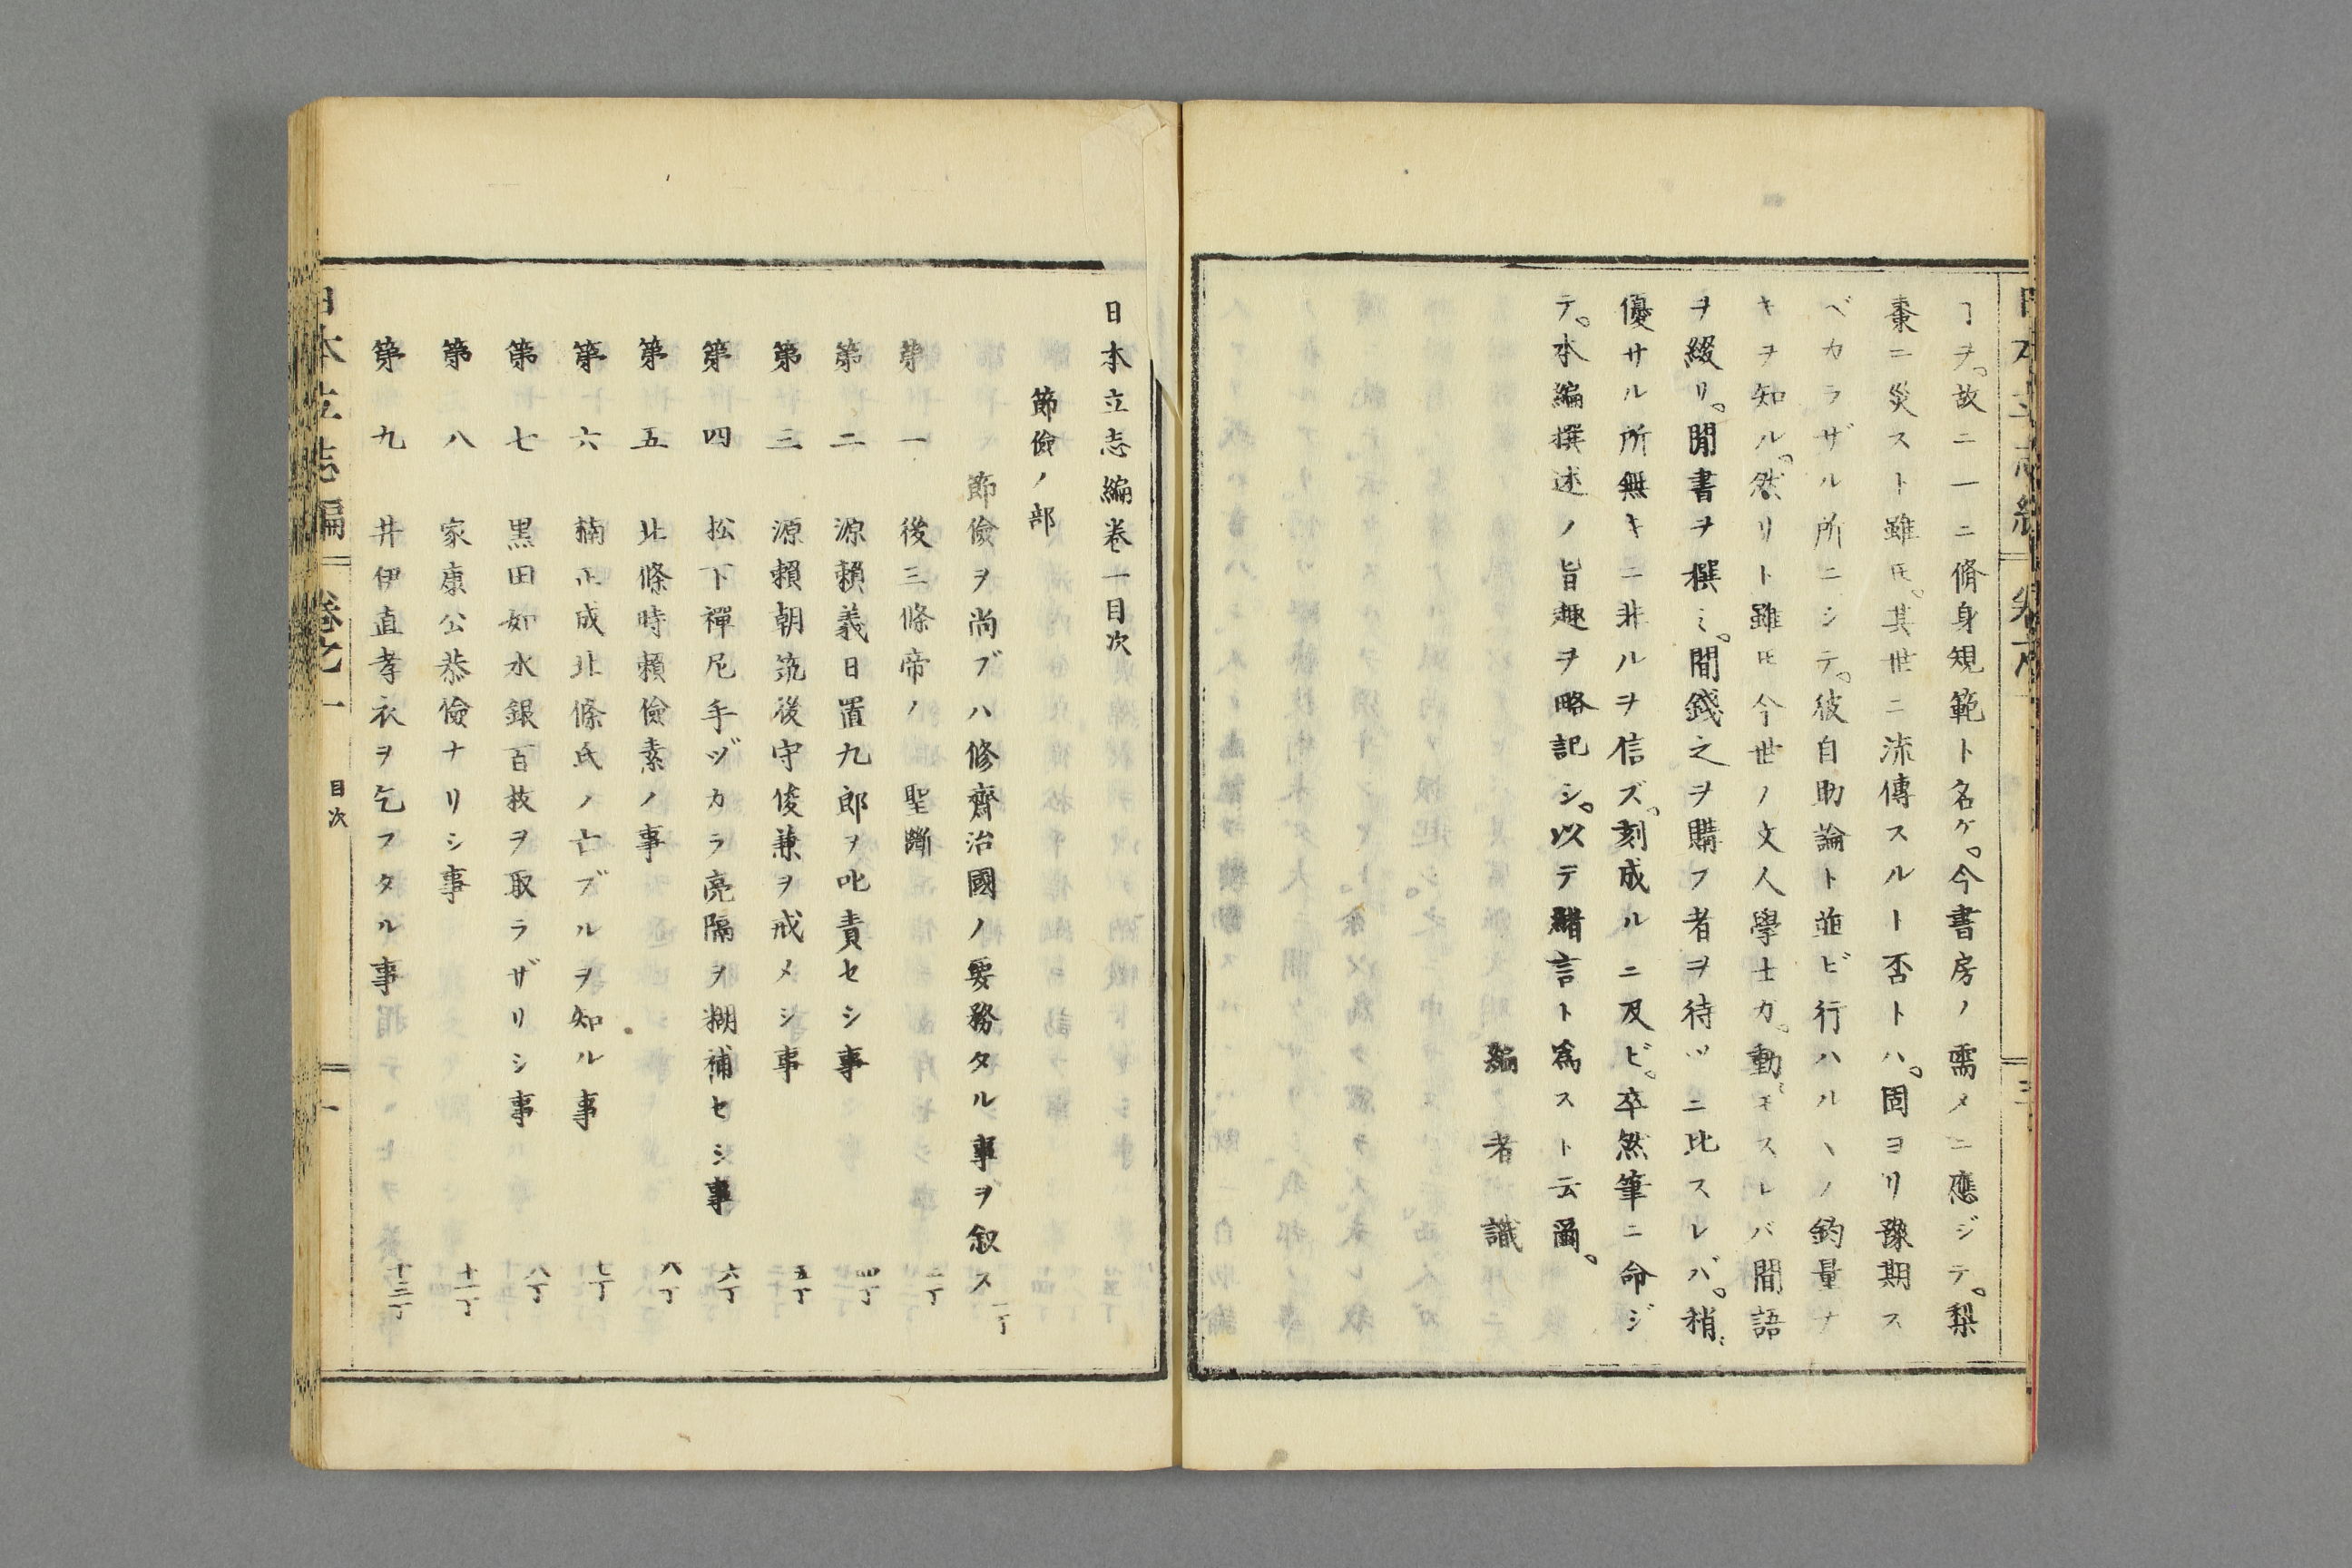 ヿヲ。故ニ一ニ脩身規範ト名ケ。今書房ノ需メニ應ジテ。梨
棗ニ災スト雖𪜈。其世ニ流傳スルト否トハ。固ヨリ豫期ス
ベカラザル所ニシテ。彼自助論ト並ビ行ハルヽノ釣量ナ
キヲ知ル。然リト雖𪜈今世ノ文人學士ガ。動モスレバ閒語
ヲ綴リ。閒書ヲ撰ミ。閒錢之ヲ購フ者ヲ待ツニ比スレバ。稍ミ
優サル所無キニ非ルヲ信ズ。刻成ルニ及ビ。卒然筆ニ命ジ
テ。本編撰述ノ旨趣ヲ略記シ。以テ緒言ト爲スト云爾。
編者識
日本立志編卷一目次
節儉ノ部
節儉ヲ尚ブハ修齊治國ノ要務タル事ヲ叙ス 一丁
第一 後三條帝ノ聖斷 二丁
第二 源賴義日置九郎ヲ叱責セシ事 四丁
第三 源賴朝筑後守俊兼ヲ戒メシ事 五丁
第四 松下禪尼手ヅカラ亮隔ヲ糊補セシ事 六丁
第五 北條時賴儉素ノ事 八丁
第六 楠正成北條氏ノ亡ブルヲ知ル事 七丁
第七 黒田如水銀百枚ヲ取ラザリシ事 八丁
第八 家康公恭儉ナリシ事 十一丁
第九 井伊直孝衣ヲ乞フタル事 十三丁
日本立志編 卷之一 目次 一